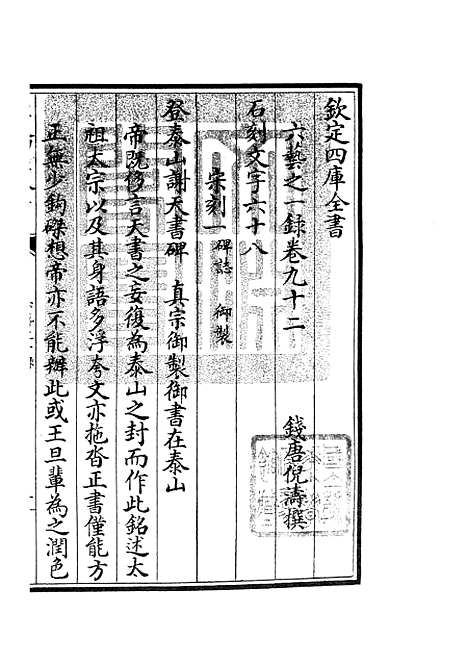 欽定四庫全書
六藝之一錄卷九十二
錢唐倪濤撰
石刻文字六十八
宋刻一碑誌 御製
登泰山謝天書碑 真宗御製御書在泰山
帝既侈言天書之妄復為泰山之封而作此銘述太
祖太宗以及其身語多浮夸文亦拖沓正書僅能方
正無少鈎磔想帝亦不能辦此或王旦輩為之潤色